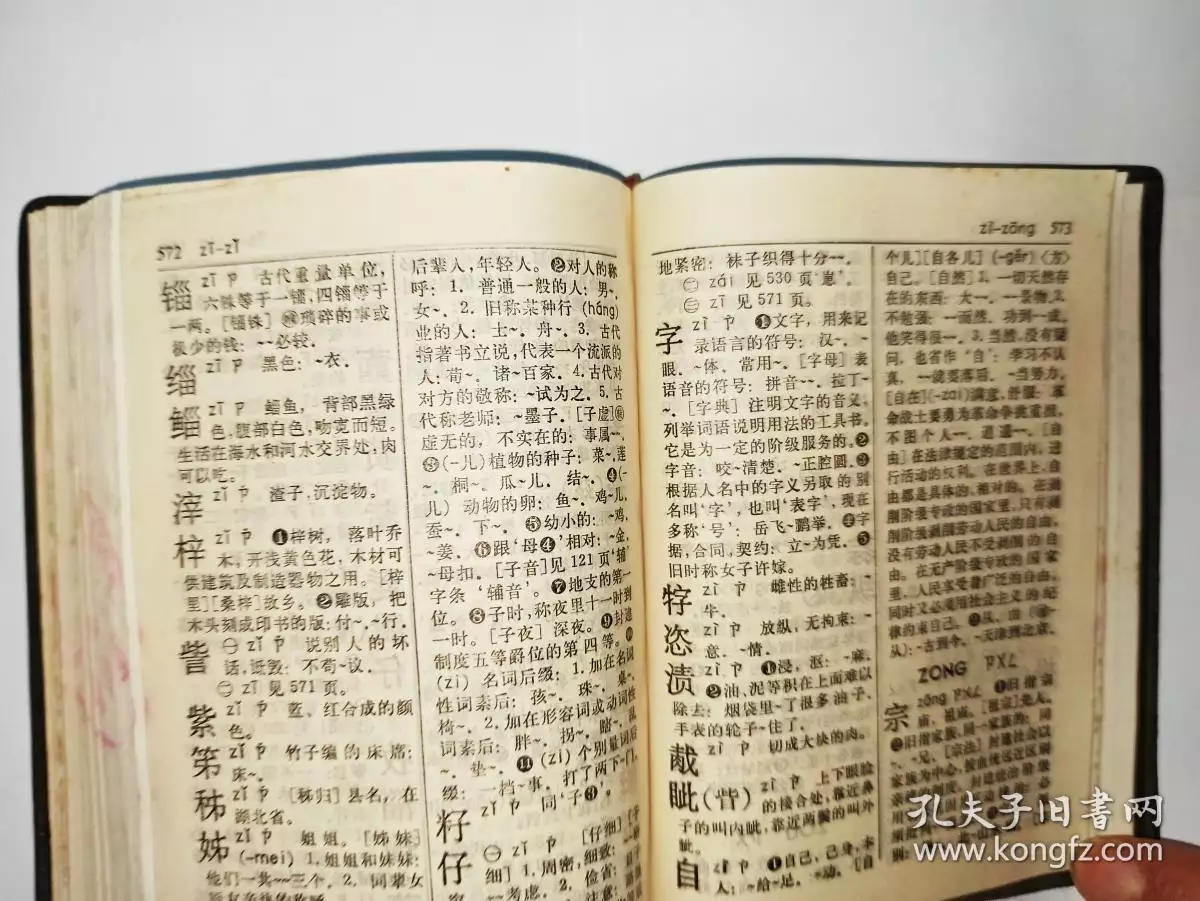 572 zī-zǐ
锱 zī ㄗ 古代重量单位,
六铢等于一锱, 四锱等于
一两。[锱铢] ㊗琐碎的事或
极少的钱: ~~必较.
缁 zī ㄗ 黑色: ~衣.
鲻 zī ㄗ 鲻鱼, 背部黑绿
色, 腹部白色, 吻宽而短.
生活在海水和河水交界处, 肉
可以吃.
滓 zǐ ㄗ 渣子, 沉淀物.
梓 zǐ ㄗ ❶梓树, 落叶乔
木, 开浅黄色花, 木材可
供建筑及制造器物之用. [梓
里][桑梓]故乡. ❷雕版, 把
木头刻成印书的版: 付~. ~行.
訾 ㊀ zǐ ㄗ 说别人的坏
话, 诋毁: 不苟~议.
㊁ zī 见 571 页.
紫 zǐ ㄗ 蓝、红合成的颜
色.
笫 zǐ ㄗ 竹子编的床席:
床~.
秭 zǐ ㄗ [秭归] 县名, 在
湖北省.
姊 zǐ ㄗ 姐姐. [姊妹]
(-mei) 1. 姐姐和妹妹:
他们一共~~三个. 2. 同辈女
后辈人, 年轻人. ❷对人的称
呼: 1. 普通一般的人: 男~.
女~. 2. 旧称某种行 (háng)
业的人: 士~. 舟~. 3. 古代
指著书立说, 代表一个流派的
人: 荀~. 诸~百家. 4. 古代对
对方的敬称: ~试为之. 5. 古
代称老师: ~墨子. [子虚]
虚无的, 不实在的: 事属~~.
❸(-儿) 植物的种子: 菜~. 莲
~. 桐~. 瓜~儿. 结~. ❹(-
儿) 动物的卵: 鱼~. 鸡~儿.
蚕~. 下~. ❺幼小的: ~鸡.
~姜. ❻跟'母❹'相对: ~金.
~母扣. [子音] 见 121 页'辅'
字条 '辅音'. ❼地支的第一
位. ❽子时, 称夜里十一时到
一时. [子夜] 深夜. ❾封建
制度五等爵位的第四等. ❿
(zi) 名词后缀: 1. 加在名词
性词素后: 孩~. 珠~. 桌~.
椅~. 2. 加在形容词或动词性
词素后: 胖~. 拐~. 瞎~. 乱
~. 垫~. ⓫ (zi) 个别量词后
缀: 一档~事. 打了两下~门.
籽 zǐ ㄗ 同'子❸'.
仔 ㊀ zǐ ㄗ [仔细]
细] 1. 周密, 细致:
~~考虑. 2. 俭省:
zǐ-zōng 573
地紧密: 袜子织得十分~~.
㊁ zǎi 见 530 页'崽'.
㊂ zī 见 571 页.
字 zì ㄗ ❶文字, 用来记
录语言的符号: 汉~. ~
眼. ~体. 常用~. [字母] 表
语音的符号: 拼音~~. 拉丁~
~. [字典] 注明文字的音义,
列举词语说明用法的工具书.
它是为一定的阶级服务的. ❷
字音: 咬~清楚. ~正腔圆. ❸
根据人名中的字义另取的别
名叫'字', 也叫'表字', 现在
多称'号': 岳飞~鹏举. ❹字
据, 合同, 契约: 立~为凭. ❺
旧时称女子许嫁.
牸 zì ㄗ 雌性的牲畜: ~
牛.
恣 zì ㄗ 放纵, 无拘束: ~
意. ~情.
渍 zì ㄗ ❶浸, 沤: ~麻.
❷油、泥等积在上面难以
除去: 烟袋里~了很多油子.
手表的轮子~住了.
胾 zì ㄗ 切成大块的肉.
眦 (眥) zì ㄗ 上下眼睑
的接合处, 靠近鼻
子的叫内眦, 靠近两鬓的叫外
眦.
自 zì ㄗ ❶自己, 己身, 本
人: ~给~足. ~动. [自
个儿][自各儿] (-gěr) 〈方〉
自己. [自然] 1. 一切天然存
在的东西: 大~~. ~~景物. 2.
不勉强: ~~而然. 功到~~成.
他笑得很~~. 3. 当然, 没有疑
问, 也省作'自': 学习不认
真, ~~就要落后. ~当努力.
[自在] (-zai) 满意, 舒服: 革
命战士要勇为革命争挑重担,
不图个人~~. 逍遥~~. [自
由] 在法律规定的范围内, 进
行活动的权利. 在世界上, 自
由都是具体的、相对的. 在剥
削阶级专政的国家里, 只有剥
削阶级剥削劳动人民的自由,
没有劳动人民不受剥削的自
由. 在无产阶级专政的国家
里, 人民享受着广泛的自由,
同时又必须用社会主义的纪
律约束自己. ❷从, 由 (
从): ~古到今. ~天津到北京.
ZONG ㄗㄨㄥ
宗 zōng ㄗㄨㄥ ❶旧指宗
庙, 祖庙. [祖宗] 先人.
❷旧指家族, 同一家族的: 同
~. ~兄. [宗法] 封建社会以
家族为中心, 按血统远近区别
孔夫子旧书网
www.kongfz.com